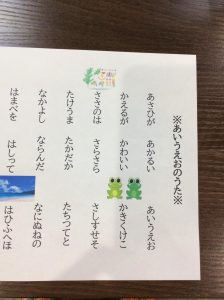 ※あいうえおのうた※
あさひが　あかるい　あいうえお
かえるが　かわいい　かきくけこ
ささのは　さらさら　さしすせそ
たけうま　たかだか　たちつてと
なかよし　ならんだ　なにぬねの
はまべを　はしって　はひふへほ